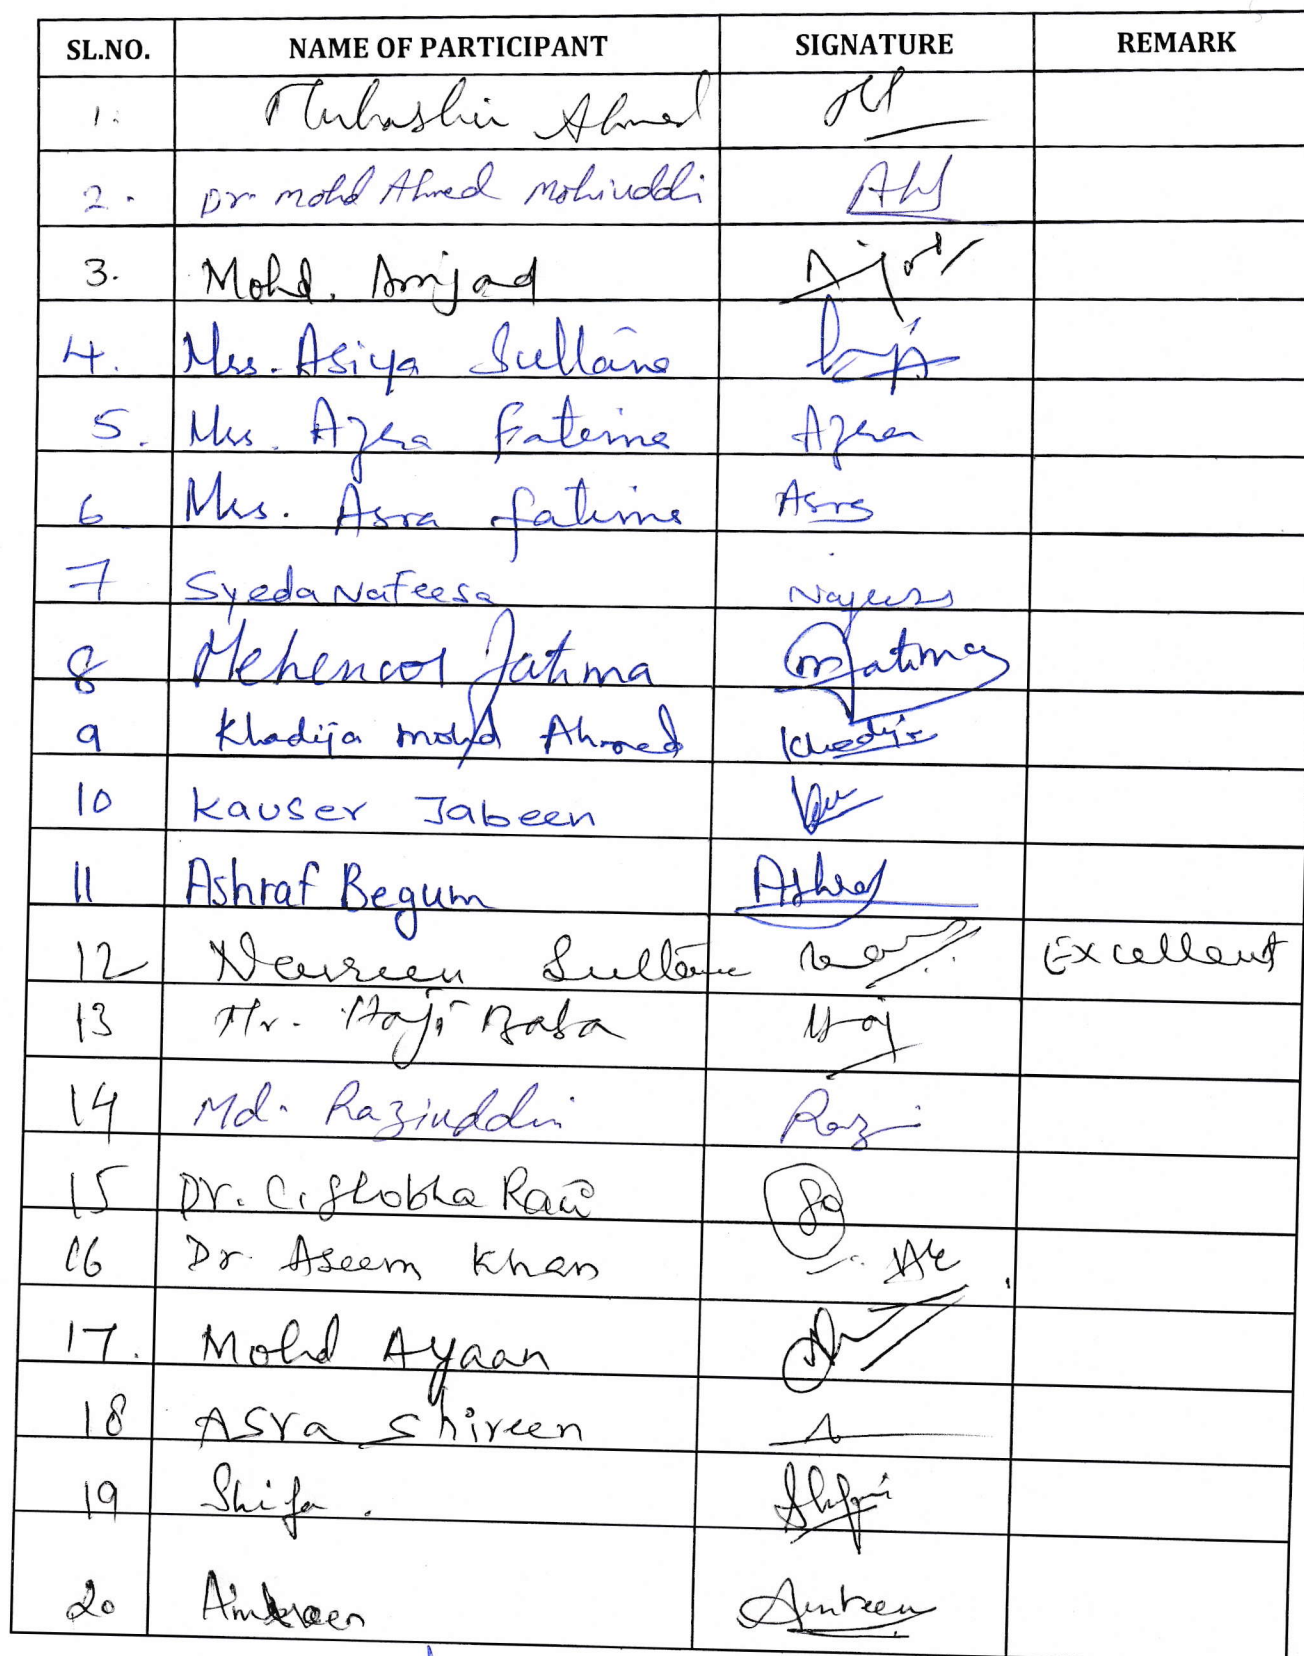 SL.NO. NAME OF PARTICIPANT SIGNATURE REMARK
1. Mubashir Ahmed
2. Dr. Mohd Ahmed Mohiuddi Ah
3. Mohd. Amjad
4. Mrs. Asiya Sultana
5. Mrs. Azra Fatima Azra
6 Mrs. Asra fatima Asra
7 Syeda Nafeesa
8 Fatima Fatima
9 Khadija mohd Ahmed Khadija
10 Kauser Jabeen
11 Ashraf Begum Ashraf
12 Sultana Excellent
13 Mr. Haji Baba Haj
14 Md. Raziuddin Razi
15 Dr. C. Shobha Rani
16 Dr. Aseem Khan AK
17. Mohd Ayaan
18 Asra Shireen
19 Shifa.
20 Ambreen Ambreen